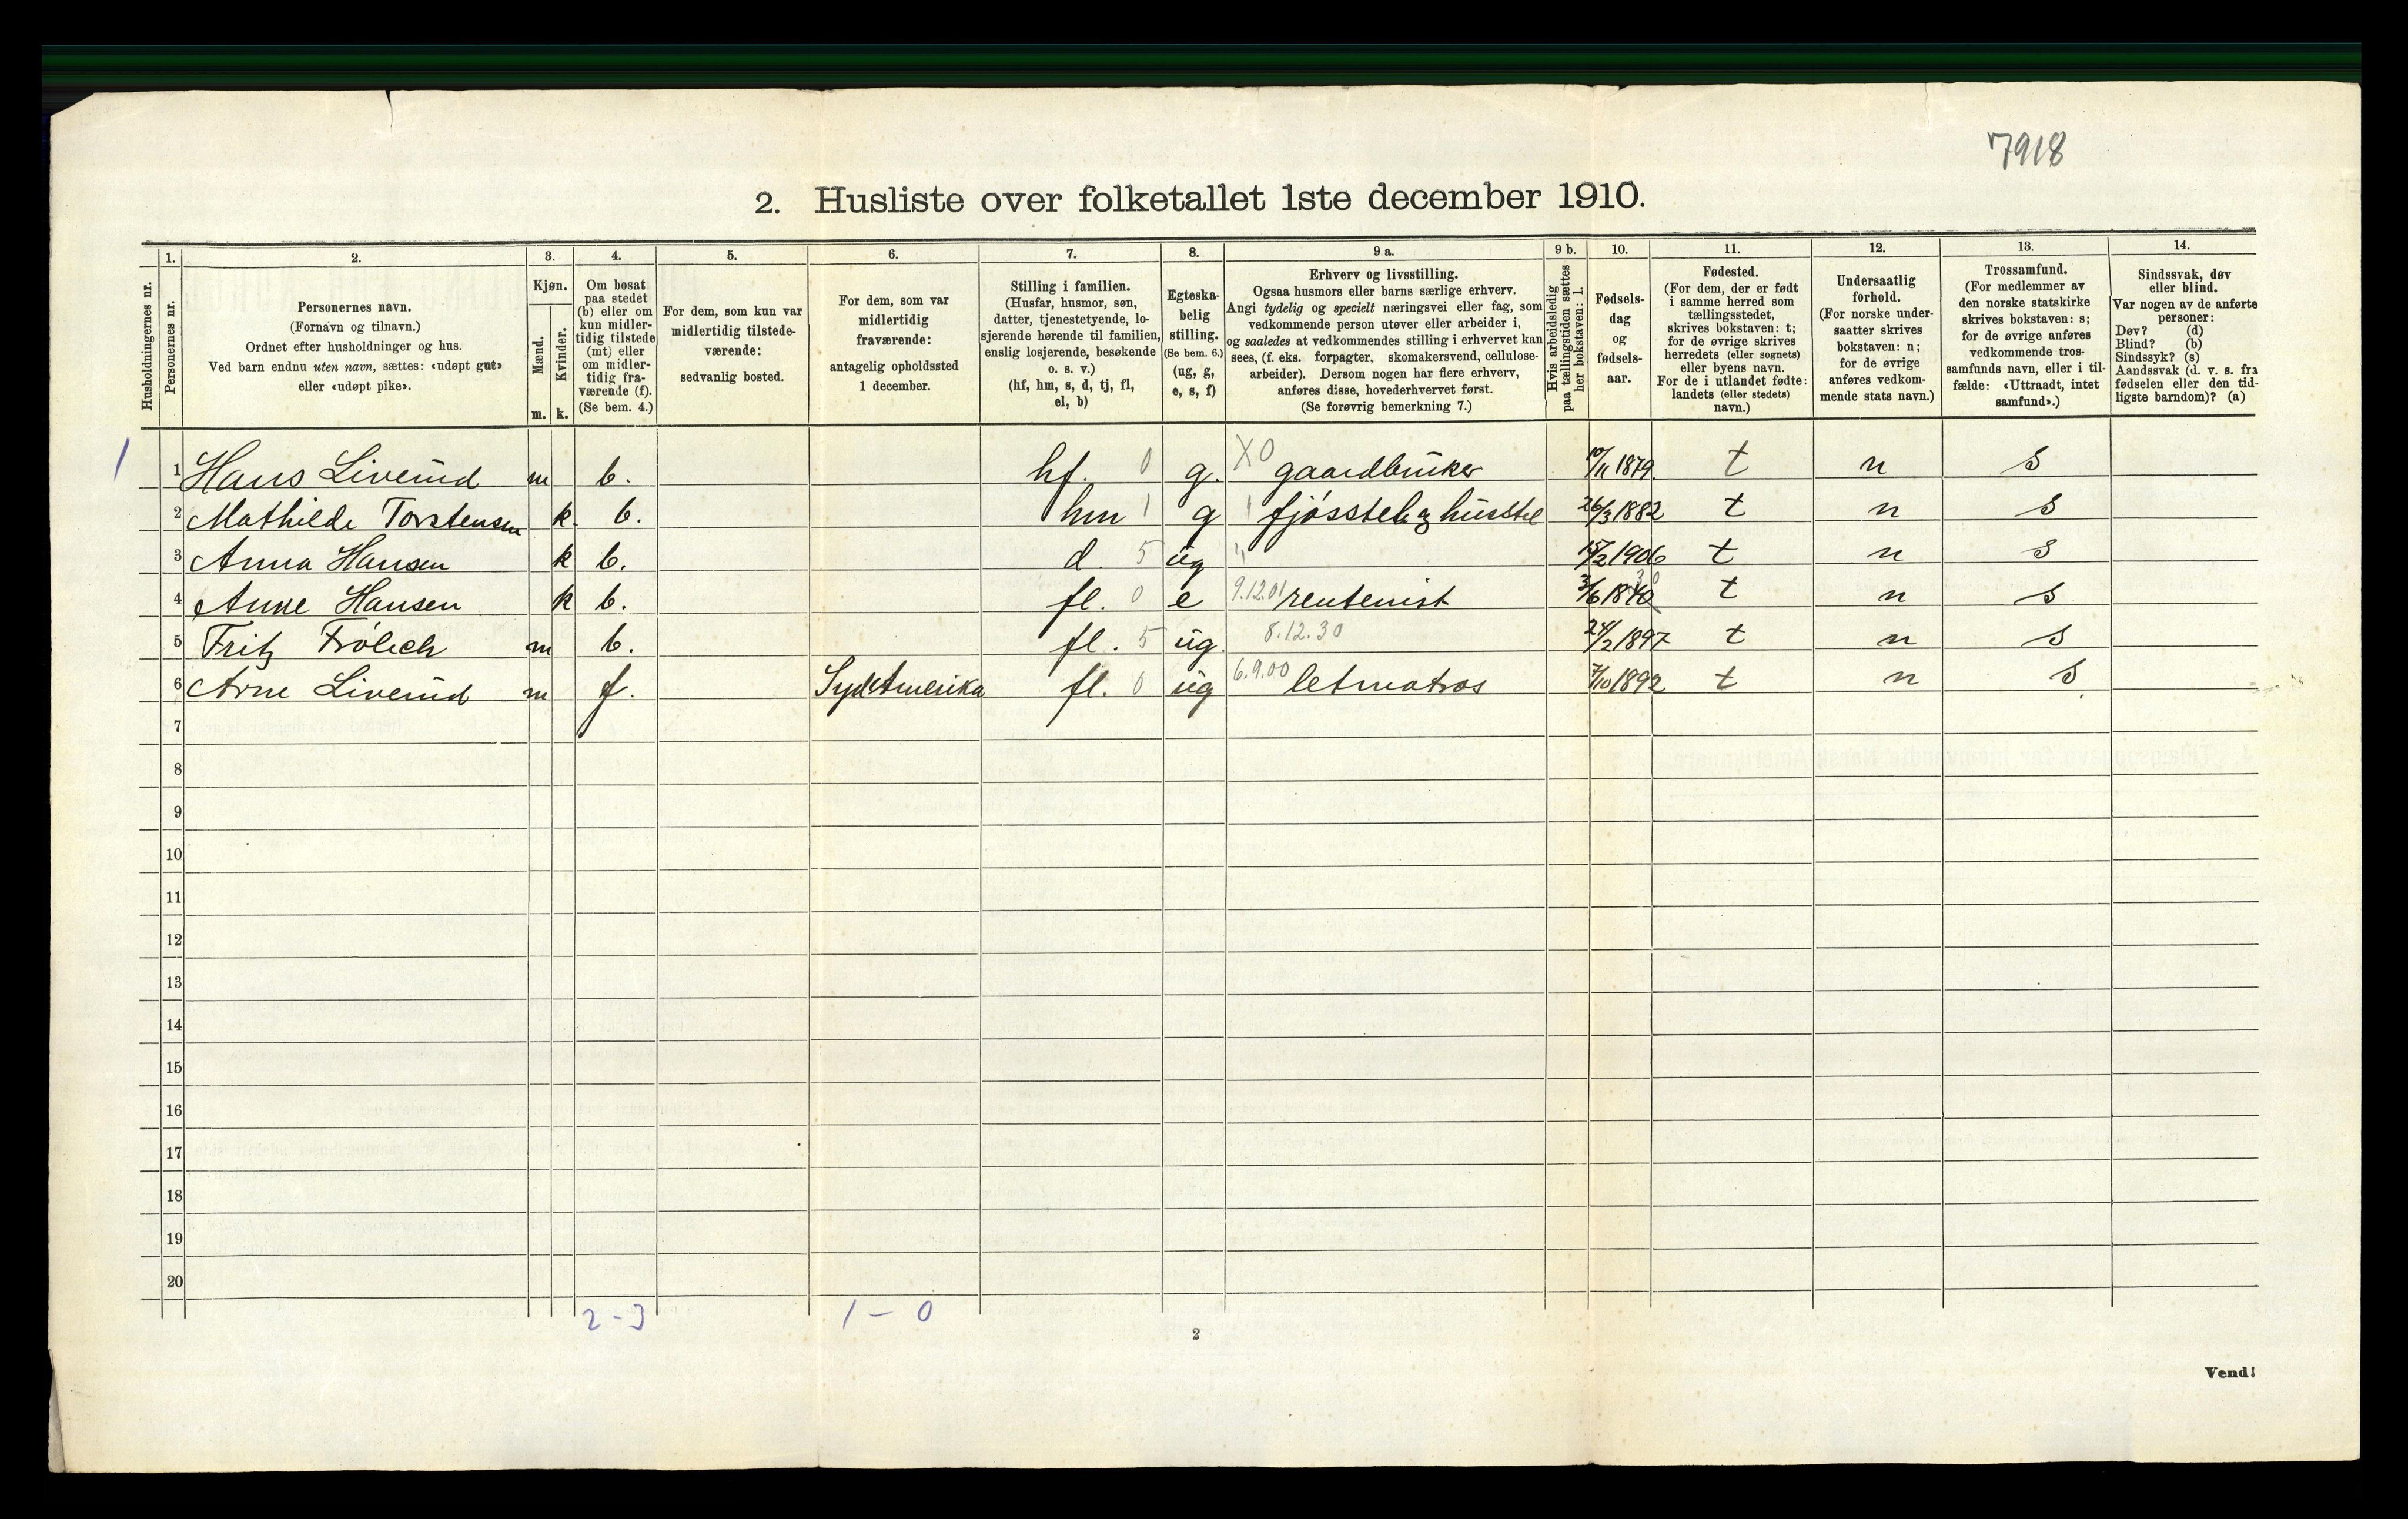 7918
2. Husliste over folketallet 1ste december 1910.
Husholdningernes nr.
1.
Personernes nr.
2.
Personernes navn.
(Fornavn og tilnavn.)
Ordnet efter husholdninger og hus.
Ved barn endnu uten navn, sættes: «udøpt gut»
eller «udøpt pike».
3.
Kjøn.
Mænd.
Kvinder.
m. k.
4.
Om bosat
paa stedet
(b) eller om
kun midler-
tidig tilstede
(mt) eller
om midler-
tidig fra-
værende (f).
(Se bem. 4.)
5.
For dem, som kun var
midlertidig tilstede-
værende:
sedvanlig bosted.
6.
For dem, som var
midlertidig
fraværende:
antagelig opholdssted
1 december.
7.
Stilling i familien.
(Husfar, husmor, søn,
datter, tjenestetyende, lo-
sjerende hørende til familien,
enslig losjerende, besøkende
o. s. v.)
(hf, hm, s, d, tj, fl,
el, b)
8.
Egteska-
belig
stilling.
(Se bem. 6.)
(ug, g,
e, s, f)
9 a.
Erhverv og livsstilling.
Ogsaa husmors eller barns særlige erhverv.
Angi tydelig og specielt næringsvei eller fag, som
vedkommende person utøver eller arbeider i,
og saaledes at vedkommendes stilling i erhvervet kan
sees, (f. eks. forpagter, skomakersvend, cellulose-
arbeider). Dersom nogen har flere erhverv,
anføres disse, hovederhvervet først.
(Se forøvrig bemerkning 7.)
9 b.
Hvis arbeidsledig
paa tællingstiden sættes
her bokstaven: l.
10.
Fødsels-
dag
og
fødsels-
aar.
11.
Fødested.
(For dem, der er født
i samme herred som
tællingsstedet,
skrives bokstaven: t;
for de øvrige skrives
herredets (eller sognets)
eller byens navn.
For de i utlandet fødte:
landets (eller stedets)
navn.)
12.
Undersaatlig
forhold.
(For norske under-
saatter skrives
bokstaven: n;
for de øvrige
anføres vedkom-
mende stats navn.)
13.
Trossamfund.
(For medlemmer av
den norske statskirke
skrives bokstav: s;
for de øvrige anføres
vedkommende tros-
samfunds navn, eller i til-
fælde: «Uttraadt, intet
samfund».)
14.
Sindssvak, døv
eller blind.
Var nogen av de anførte
personer:
Døv? (d)
Blind? (b)
Sindssyk? (s)
Aandssvak (d. v. s. fra
fødselen eller den tid-
ligste barndom)? (a)
1 1 Hans Liverud m b. hf. 0 g. X0 gaardbruker 10/11 1879. t n s
2 Mathilde Torstensen k. b. hm 1 g fjósstel og husstel 26/3 1882 t n s
3 Anna Hansen k b. d. 5 ug 15/2 1906 t n s
4 Anne Hansen k b. fl. 0 e 9.12.01 rentenist 3/6 1840 30 t n s
5 Fritz Frólich m b. fl. 5 ug. 8.12.30 24/2 1897 t n s
6 Arne Liverud m f. SydAmerika fl. 0 ug 6.9.00 letmatros 7/10 1892 t n s
7
8
9
10
11
12
13
14
15
16
17
18
19
20
2-3 1-0
2
Vend!